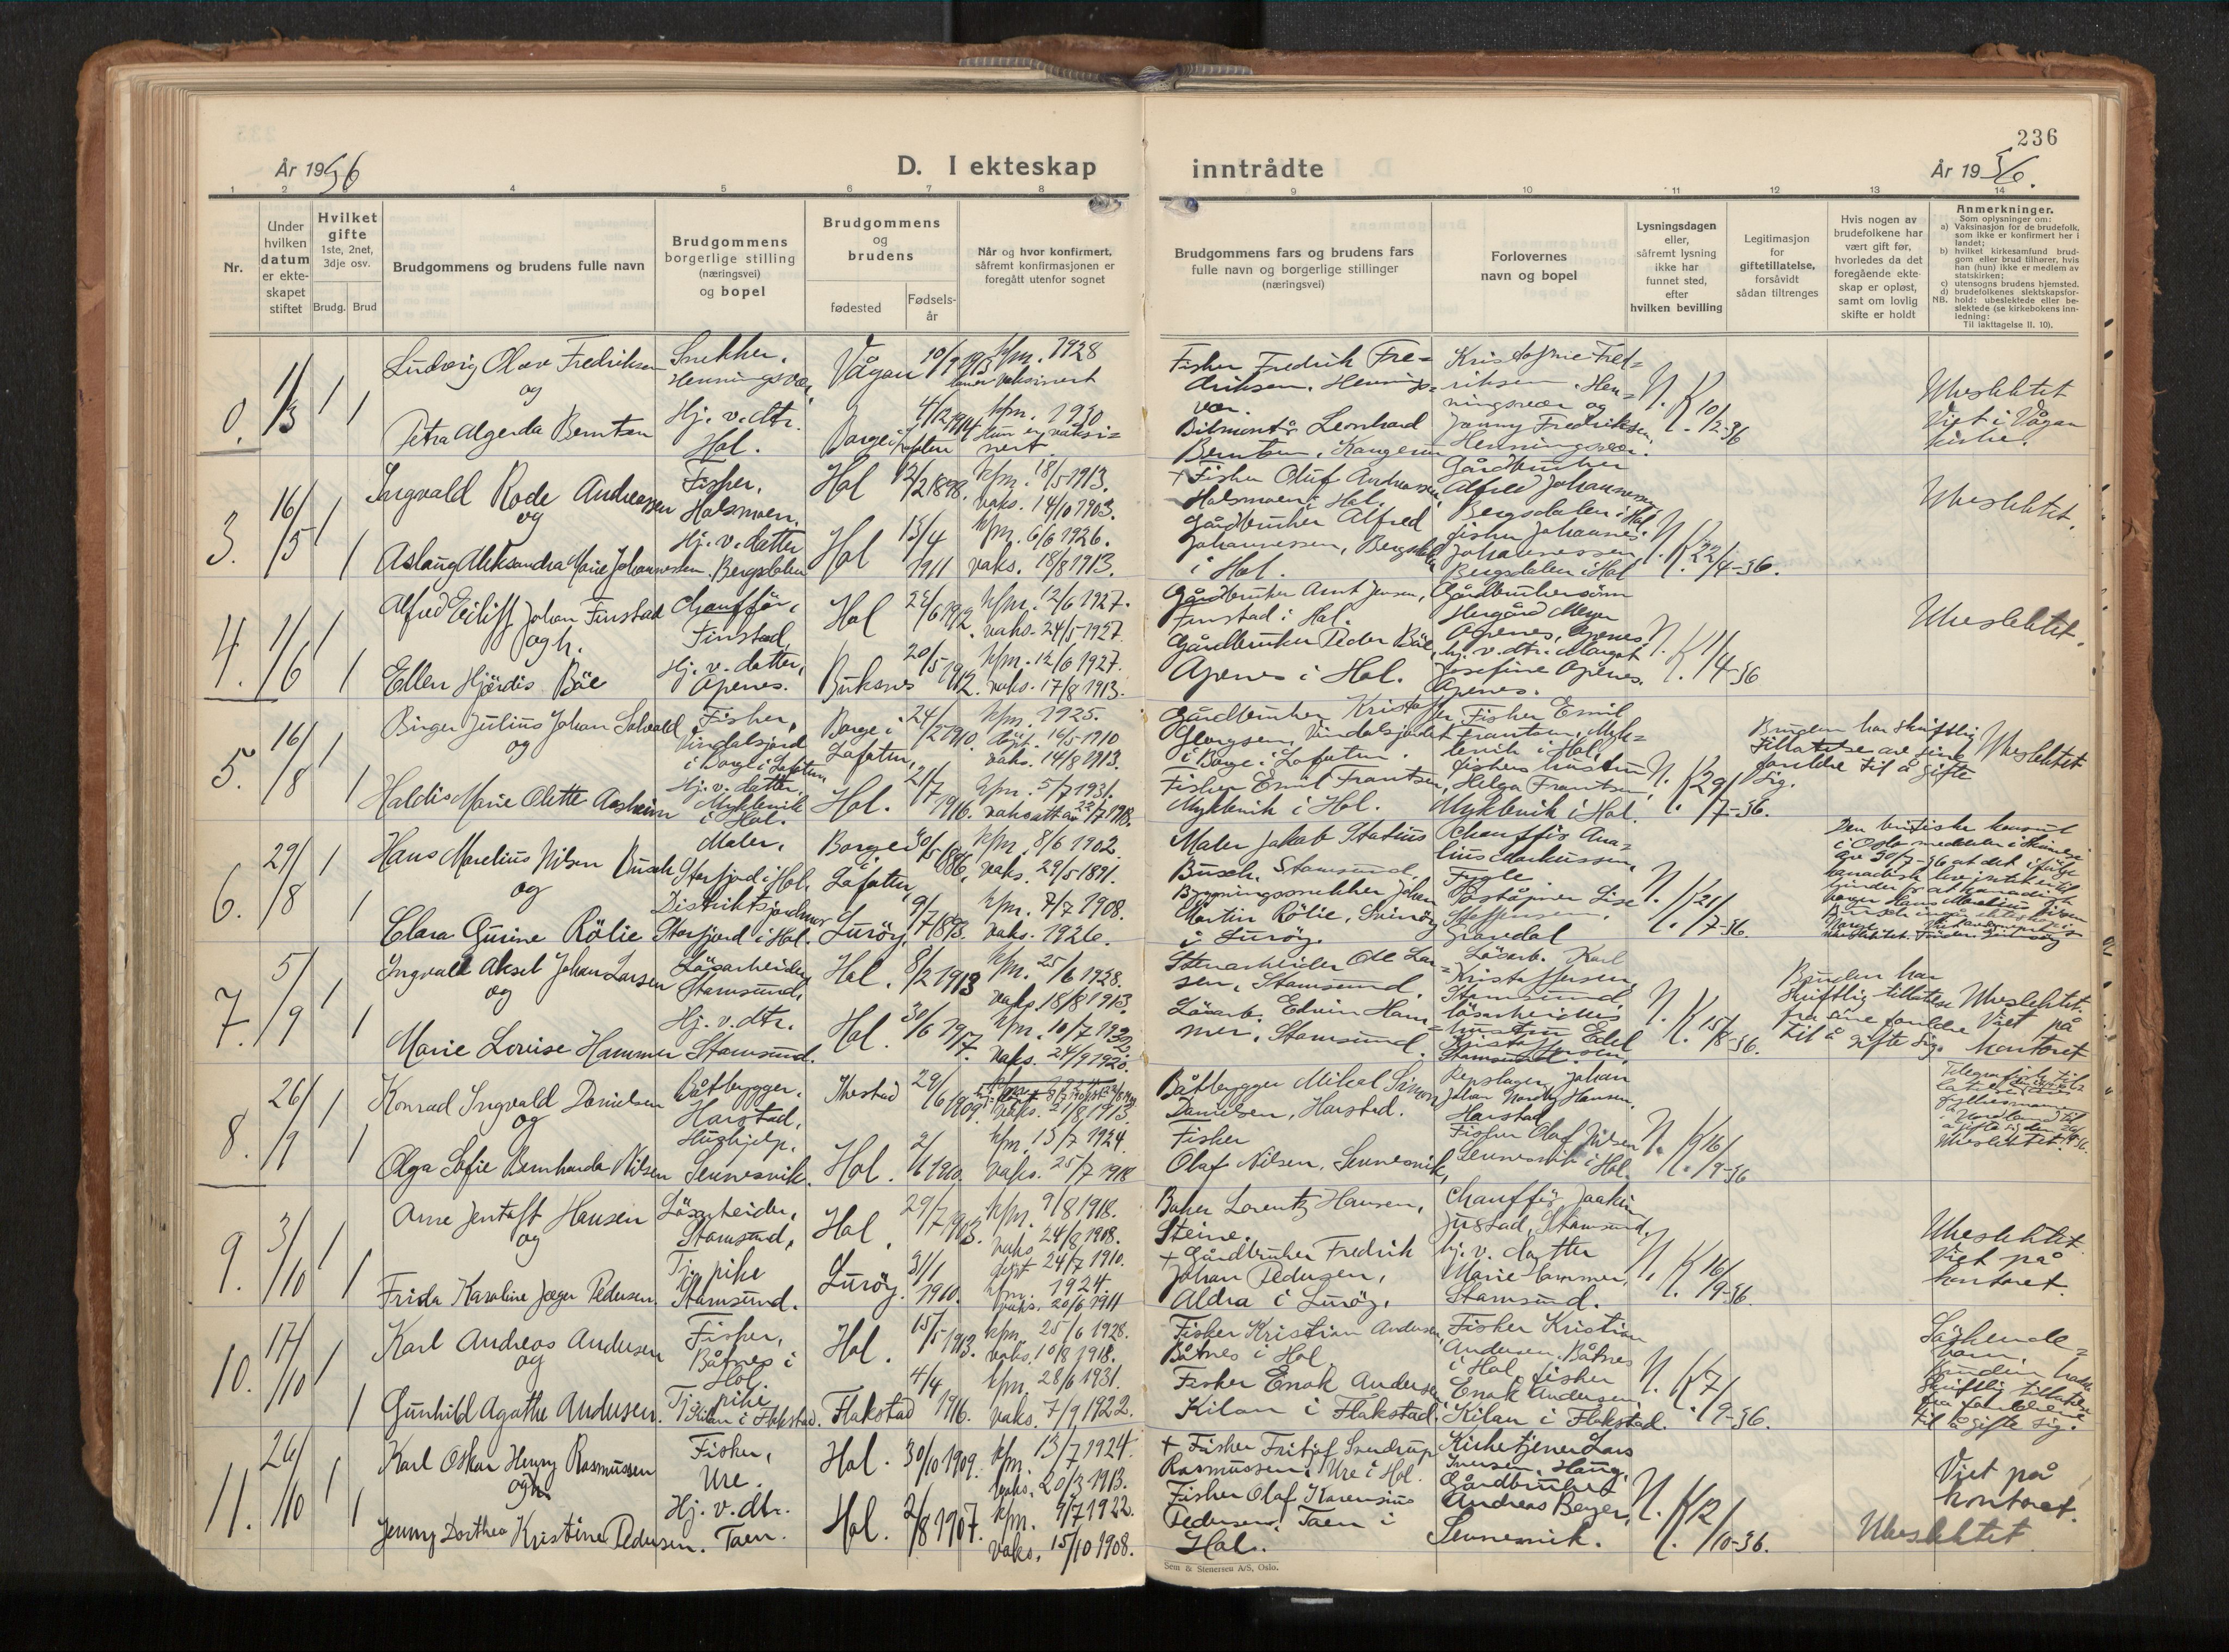 236
År 1936
D. I ekteskap
inntrådte
År 1936.
1 2 3 4 5 6 7 8 9 10 11 12 13 14
Nr.
Under
hvilken
datum
er ekte-
skapet
stiftet
Hvilket
gifte
1ste, 2net,
3dje osv.
Brudg. Brud
Brudgommens og brudens fulle navn
Brudgommens
borgerlige stilling
(næringsvei)
og bopel
Brudgommens
og
brudens
fødested
Fødsels-
år
Når og hvor konfirmert,
såfremt konfirmasjonen er
foregått utenfor sognet
Brudgommens fars og brudens fars
fulle navn og borgerlige stillinger
(næringsvei)
Forlovernes
navn og bopel
Lysningsdagen
eller,
såfremt lysning
ikke har
funnet sted,
efter
hvilken bevilling
Legitimasjon
for
giftetillatelse,
forsåvidt
sådan tiltrenges
Hvis nogen av
brudefolkene har
vært gift før,
hvorledes da det
foregående ekte-
skap er opløst,
samt om lovlig
skifte er holdt
Anmerkninger.
Som oplysninger om:
a) Vaksinasjon for de brudefolk,
som ikke er konfirmert her i
landet;
b) hvilket kirkesamfund brud-
gom eller brud tilhører, hvis
han (hun) ikke er medlem av
statskirken;
c) utensogns brudens hjemsted.
d) brudefolkenes slektskapsfor-
NB. hold: ubeslektede eller be-
slektede (se kirkebokens inn-
ledning:
Til iakttagelse II. 10).
0. 1/3 1 1
Ludvig Olav Fredriksen
og
Petra Algerda Berntsen
Snekker,
Henningsvær,
Hj. v. dtr.
Hol.
Vågan 10/9 1913
kfm. 1928
Borge i Lofoten 4/12 1914
kfm. 1930
Hun er vaksi=
nert.
Fisker Fredrik Fre=
driksen, Hennings=
vær.
Bilmontør Leonhard
Berntsen,
Kristofine Fred=
riksen, Hen=
ningsvær og
Jenny Fredriksen,
Henningsvær.
N. K. 10/2-36
Ubeslektet
Viet i Vågan
kirke.
3. 16/5 1 1
Ingvald Rode Andreassen
og
Aslaug Aleksandra Marie Johannessen.
Fisker,
Holsmoen.
Hj. v. datter
Bergsdalen
Hol 12/2 1898.
kfm. 18/5 1913.
vaks. 14/10 1903.
Hol 13/4 1911
kfm. 6/6 1926.
vaks. 18/8 1913.
+ Fisker Oluf Andreassen,
Holsmoen i Hol.
Gårdbruker Alfred
Johannessen, Bergsdalen
i Hol.
Gårdbruker
Alfred Johannessen,
Bergsdalen i Hol.
fisker Johannes
Johannessen,
Bergsdalen i Hol
N. K. 22/4-36.
Ubeslektet.
4. 1/6 1 1
Alfred Eiliff Johan Finstad
og h.
Ellen Hjördis Båe
Chauffør,
Finstad
Hj. v. datter,
Openes.
Hol 24/6 1912.
kfm. 12/6 1927.
vaks. 24/5 1927.
Buksnes 20/5 1912.
kfm. 12/6 1927.
vaks. 17/8 1913.
Gårdbruker Arnt Jensen,
Finstad i Hol.
Gårdbruker Peder Båe,
Openes i Hol.
Gårdbrukersønn
Openes, Openes
hj. v. dtr. Margot
Josefine Openes,
Openes.
N. K. 1/4-36
Ubeslektet.
5. 16/8 1 1
Birger Julius Johan Solvold
og
Haldis Marie Olette Aasheim
Fisker,
Vindalsjord
i Borge i Lofoten
Hj. v. datter,
Myklevik
i Hol.
Borge i
Lofoten, 24/2 1910.
kfm. 1925.
døpt. 16/5 1910
vaks. 14/8 1913.
Hol. 21/7 1916.
kfm. 5/7 1931.
vaksatt av 22/7 1918.
Gårdbruker Kristoffer
Georgsen, Vindalsjordet
i Borge i Lofoten.
Fisker Emil Frantsen,
Myklevik i Hol.
Fisker Emil
Frantsen, Myk=
levik i Hol,
fiskers hustru
Helga Frantsen,
Myklevik i Hol.
N. K. 29/7-36.
Bruden har skriftlig
tillatelse av sine
foreldre til å gifte
sig.
Ubeslektet
6. 29/8 1 1
Hans Marelius Nilsen Busch
og
Clara Gurine Rölie
Maler,
Storfjord i Hol,
Distriktsjordmor
Storfjord i Hol.
Borge i
Lofoten, 30/5 1886,
kfm. 8/6 1902.
vaks. 29/5 1891.
Luröy. 9/7 1893.
kfm. 7/7 1908.
vaks. 1926.
Maler Jakob Statius
Busch, Stamsund.
Bygningssnekker Johan
Martin Rölie,
i Luröy.
Chauffør Ana=
lius Markussen,
Fygle
Lise
Steffensen,
Gravdal
N. K. 21/7-36.
Den britiske konsul
i Oslo meddeler i skrivelse
av 30/7-36 at det ifølge
kanadisk lov intet er til
hinder for at kanadisk
borger Hans Marelius Nilsen
Busch inngår ekteskap i
Norge.
7. 5/9 1 1
Ingvald Aksel Johan Larsen
og
Marie Lovise Hammer
Lösarbeider
Stamsund,
Hj. v. dtr.
Stamsund.
Hol. 8/2 1913
kfm. 25/6 1928.
vaks. 18/8 1913.
Hol. 30/6 1917.
kfm. 10/7 1932.
vaks. 24/9 1920.
Stenarbeider Ole Lar=
sen, Stamsund.
Lösarb. Edvin Ham=
mer, Stamsund.
Lösarb. Karl
Kristoffersen,
Stamsund
lösarbeiders
hustru Edel
Kristoffersen,
Stamsund.
N. K. 15/8-36.
Bruden har
skriftlig tillatelse
fra sine foreldre
til å gifte sig.
Ubeslektet.
Viet på
kontoret
8. 26/9 1 1
Konrad Ingvald Danielsen
og
Olga Sofie Bernharda Nilsen
Båtbygger.
Harstad,
Hushjelp,
Sennesvik.
29/6 1909.
vaks. 21/8 1913.
Hol.
kfm. 13/7 1924.
vaks. 25/7 1918
Båtbygger Mikal Simon
Danielsen, Harstad.
Fisker
Olaf Nilsen, Sennesvik,
Repslager Johan
Hansen,
Harstad
Fisker Olaf Nilsen
Sennesvik i Hol.
N. K. 16/9-36
fylkesmann
i Nordland til
å gifte sig den
Ubeslektet.
9. 3/10 1 1
Arne Jentoft Hansen
og
Frida Karoline Jæger Pedersen.
Lösarbeider,
Stamsund,
Tj. pike
Stamsund.
Hol. 29/7 1903.
kfm. 9/8 1918.
vaks. 24/8 1908.
Luröy. 31/1 1910.
døpt 24/7 1910.
kfm. 1924.
vaks. 20/6 1911
Baker Lorentz Hansen,
Steine.
+ Gårdbruker Fredrik
Johan Pedersen,
Aldra i Luröy,
Chauffør Joakim
Justad, Stamsund,
hj. v. datter
Marie Hammer,
Stamsund.
N. K. 16/9-36.
Ubeslektet.
Viet på
kontoret.
10. 17/10 1 1
Karl Andreas Andersen
og
Gunhild Agathe Andersen.
Fisker,
Båtnes i
Hol.
Tj. pike
Kilan i Flakstad.
Hol. 15/5 1913.
kfm. 25/6 1928.
vaks. 10/8 1918.
Flakstad 4/4 1916.
kfm. 28/6 1931.
vaks. 7/9 1922.
Fisker Kristian Andersen,
Båtnes i Hol.
Fisker Enok Andersen
Kilan i Flakstad.
Fisker Kristian
Andersen, Båtnes
i Hol, fisker
Enok Andersen,
Kilan i Flakstad.
N. K. 7/9-36.
Söskende=
barn.
Bruden hadde
skriftlig tillatelse
fra foreldrene
til å gifte sig.
11. 24/10 1 1
Karl Oskar Henry Rasmussen
og h.
Jenny Dorthea Kristine Pedersen.
Fisker,
Ure.
Hj. v. dtr.
Taen.
Hol. 30/10 1909.
kfm. 13/7 1924.
vaks. 20/3 1913.
Hol. 2/8 1907.
kfm. 9/7 1922.
vaks. 15/10 1908.
+ Fisker Fritjof Sverdrup
Rasmussen, Ure i Hol.
Fisker Olaf Karensius
Pedersen, Taen i
Hol.
Kirketjener Lars
Iversen, Haug,
Gårdbruker
Andreas Berger,
Sennesvik.
N. K. 12/10-36.
Viet på
kontoret.
Ubeslektet
Sem & Stenersen A/S, Oslo.